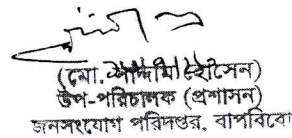 (মো. হোসেন)
উপ-পরিচালক (প্রশাসন)
জনসংযোগ পরিদপ্তর, বাপবিবো